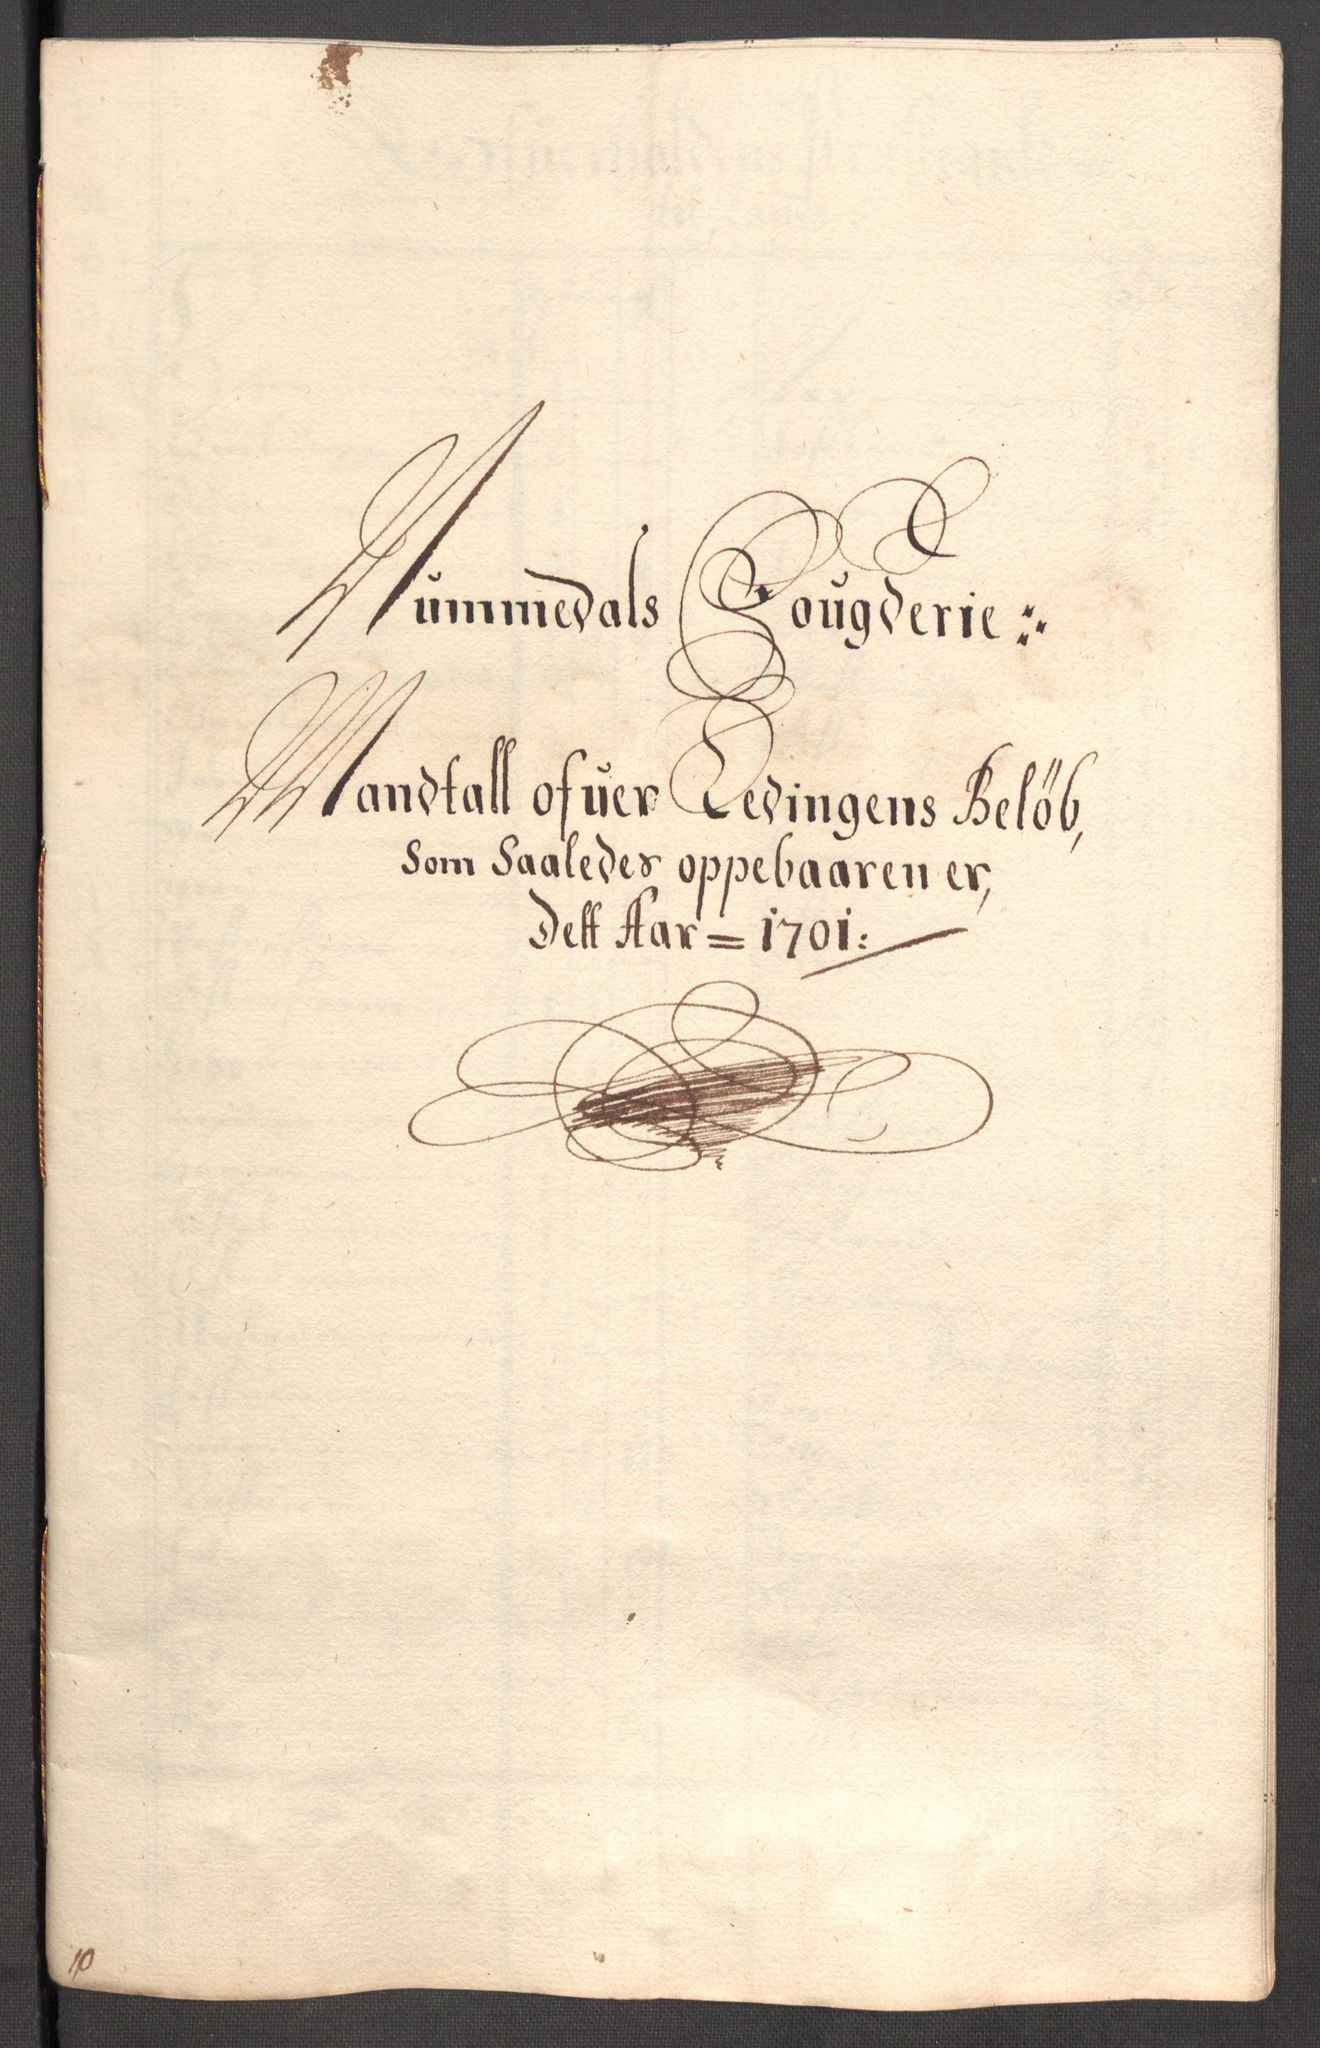 Nummedals Fougderie
Mandtall ofuer Ledingens Belöb,
som saaledes oppebaaren er,
dett Aar = 1701:
10